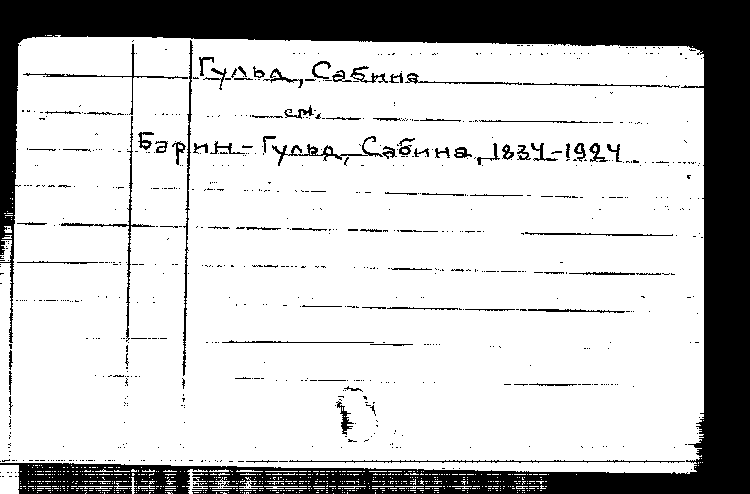 Гульд, Сабина
см.
Барин-Гульд, Сабина, 1834-1924.